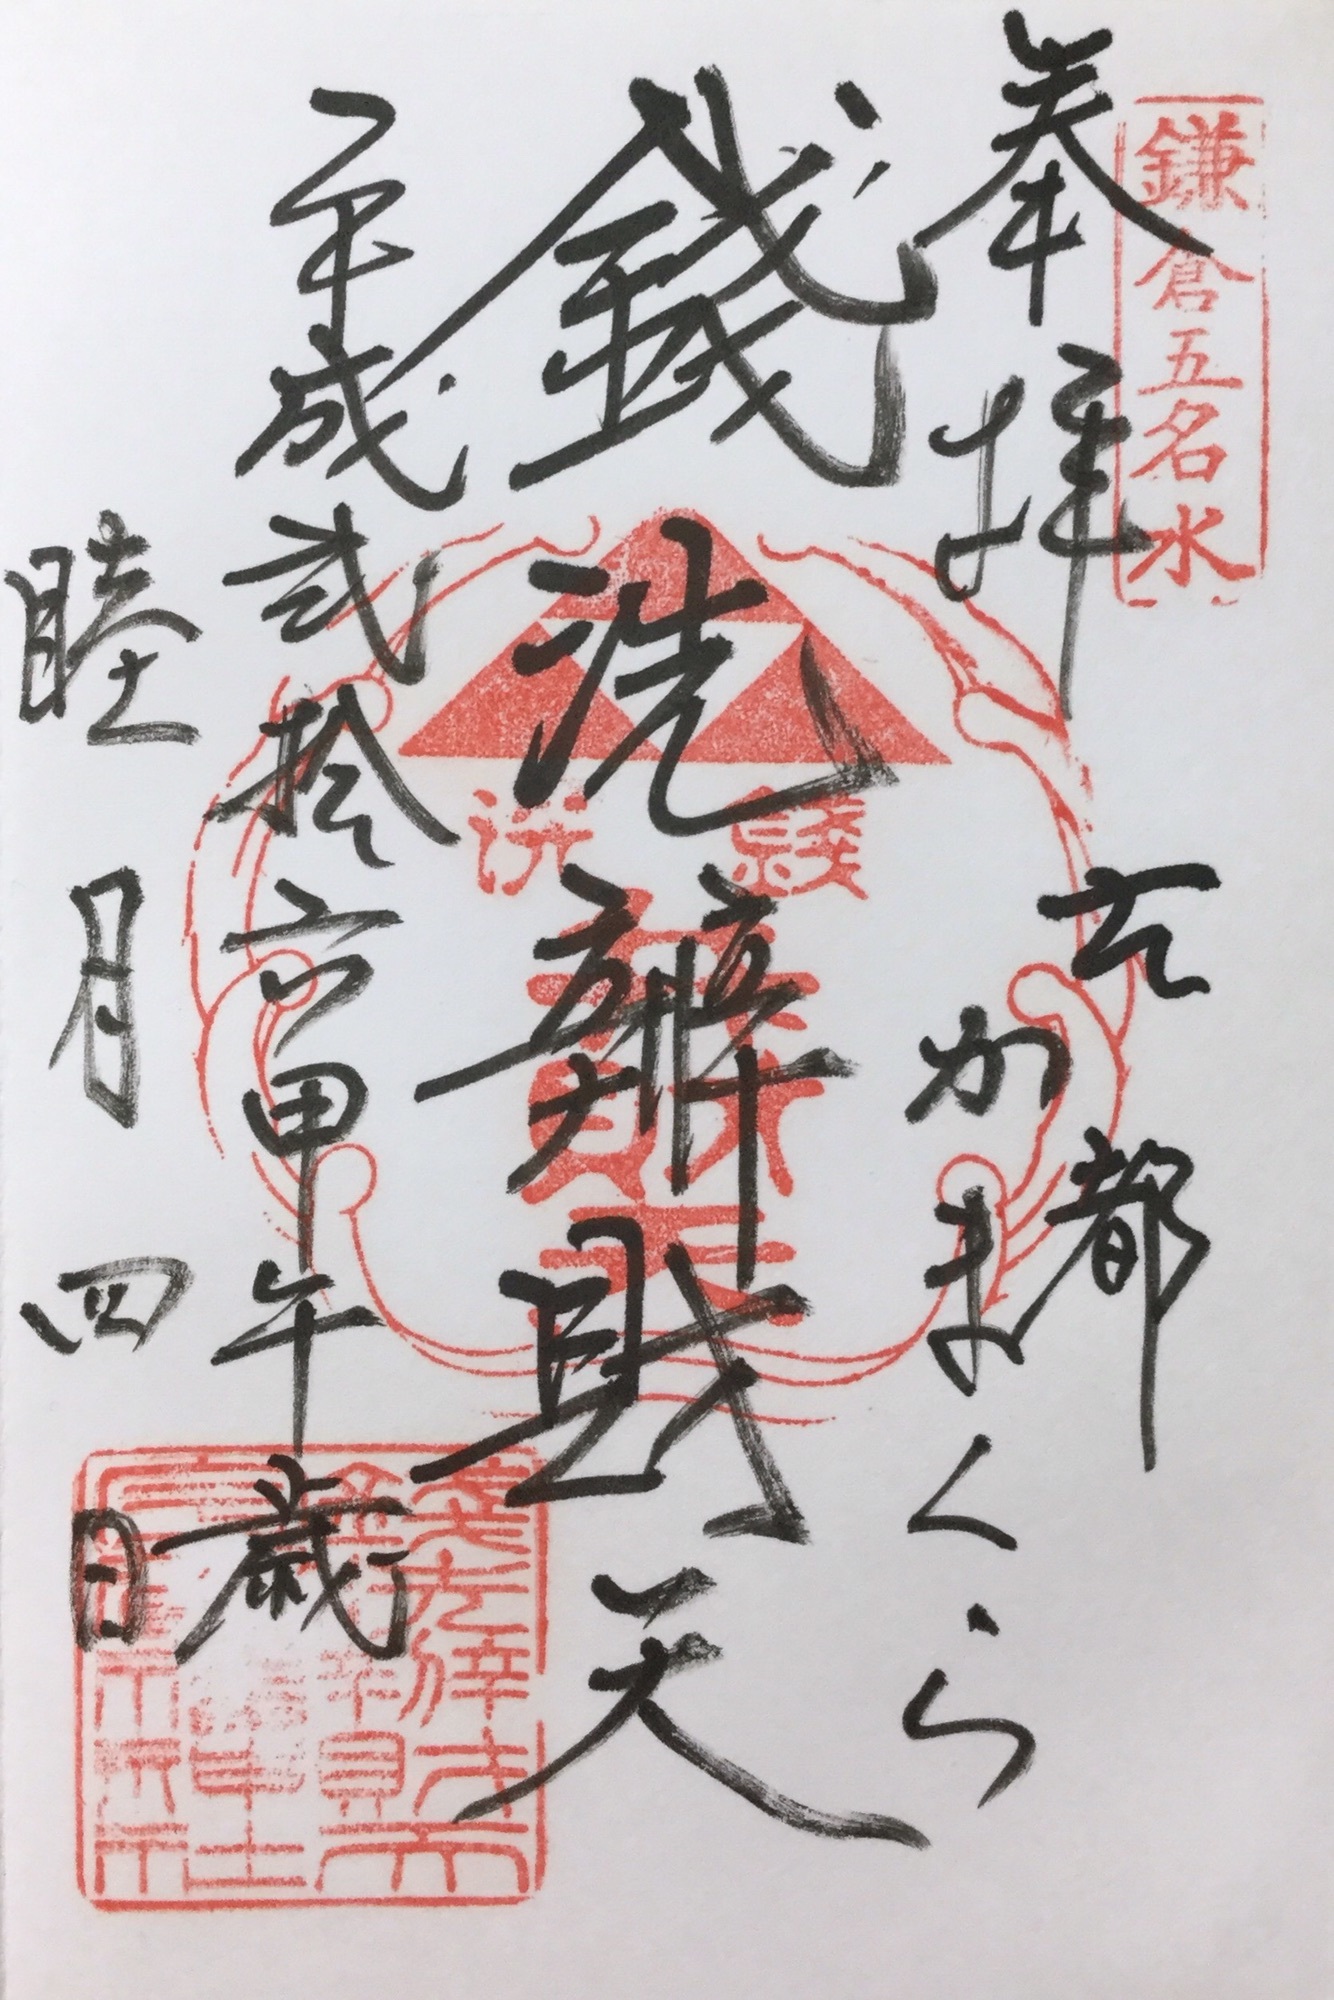 鎌倉五名水
奉拝
古都
かまくら
銭洗辨財天
銭洗
辨天
平成弐拾六甲午歳
睦月四日